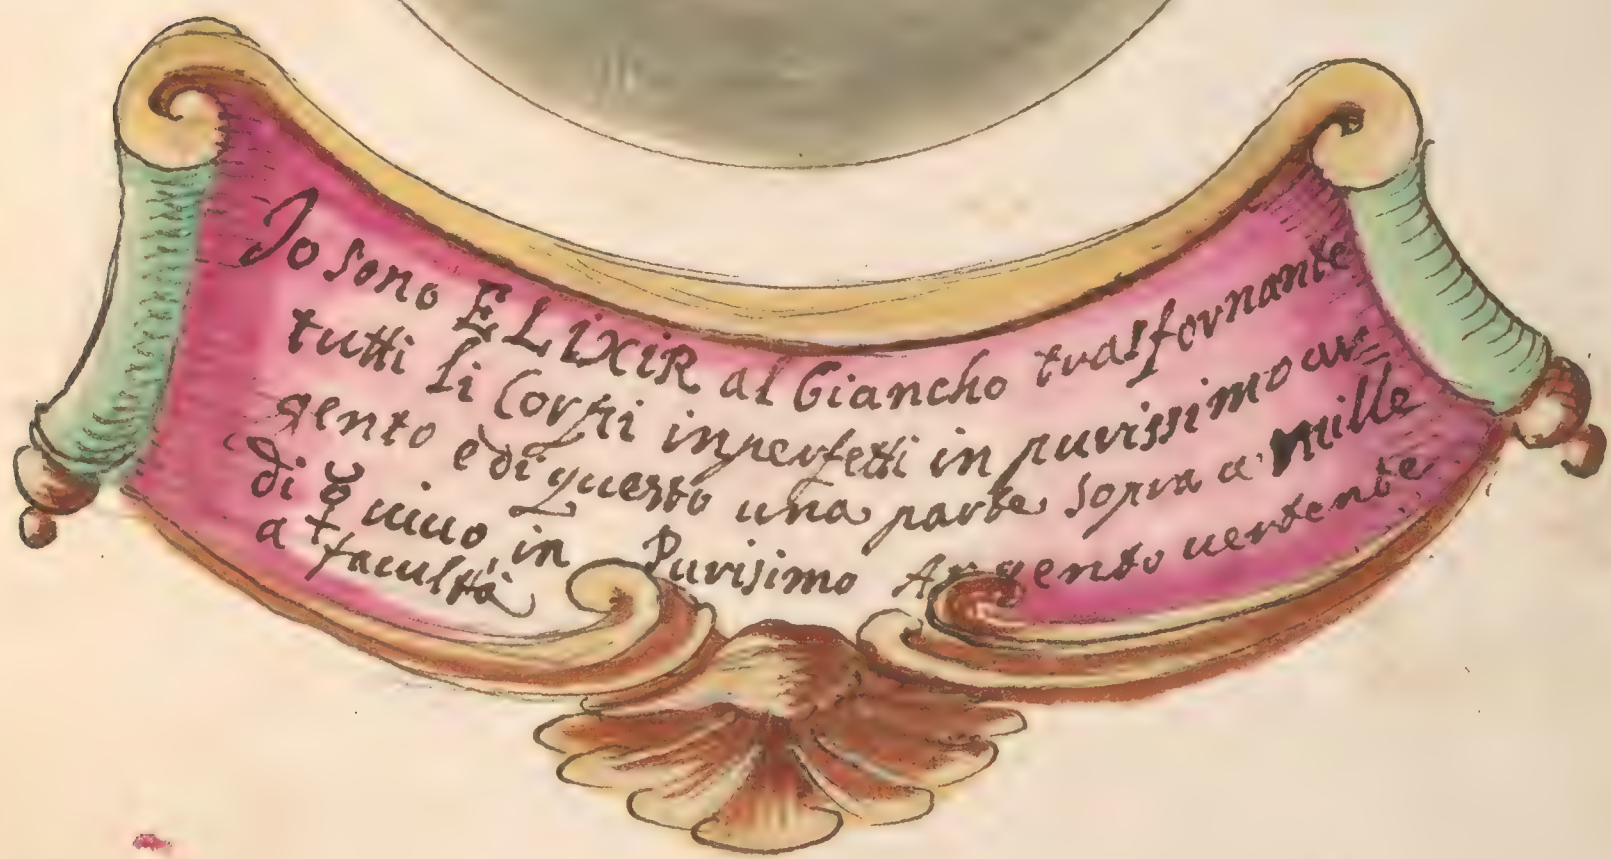 Jo sono ELIXIR al Biancho trasfornante
tutti li Corpi inperfetti in purissimo ar=
gento e di questo una parte sopra a Mille
di ☿ uiuo, in Purisimo Argento uertente
a facultà